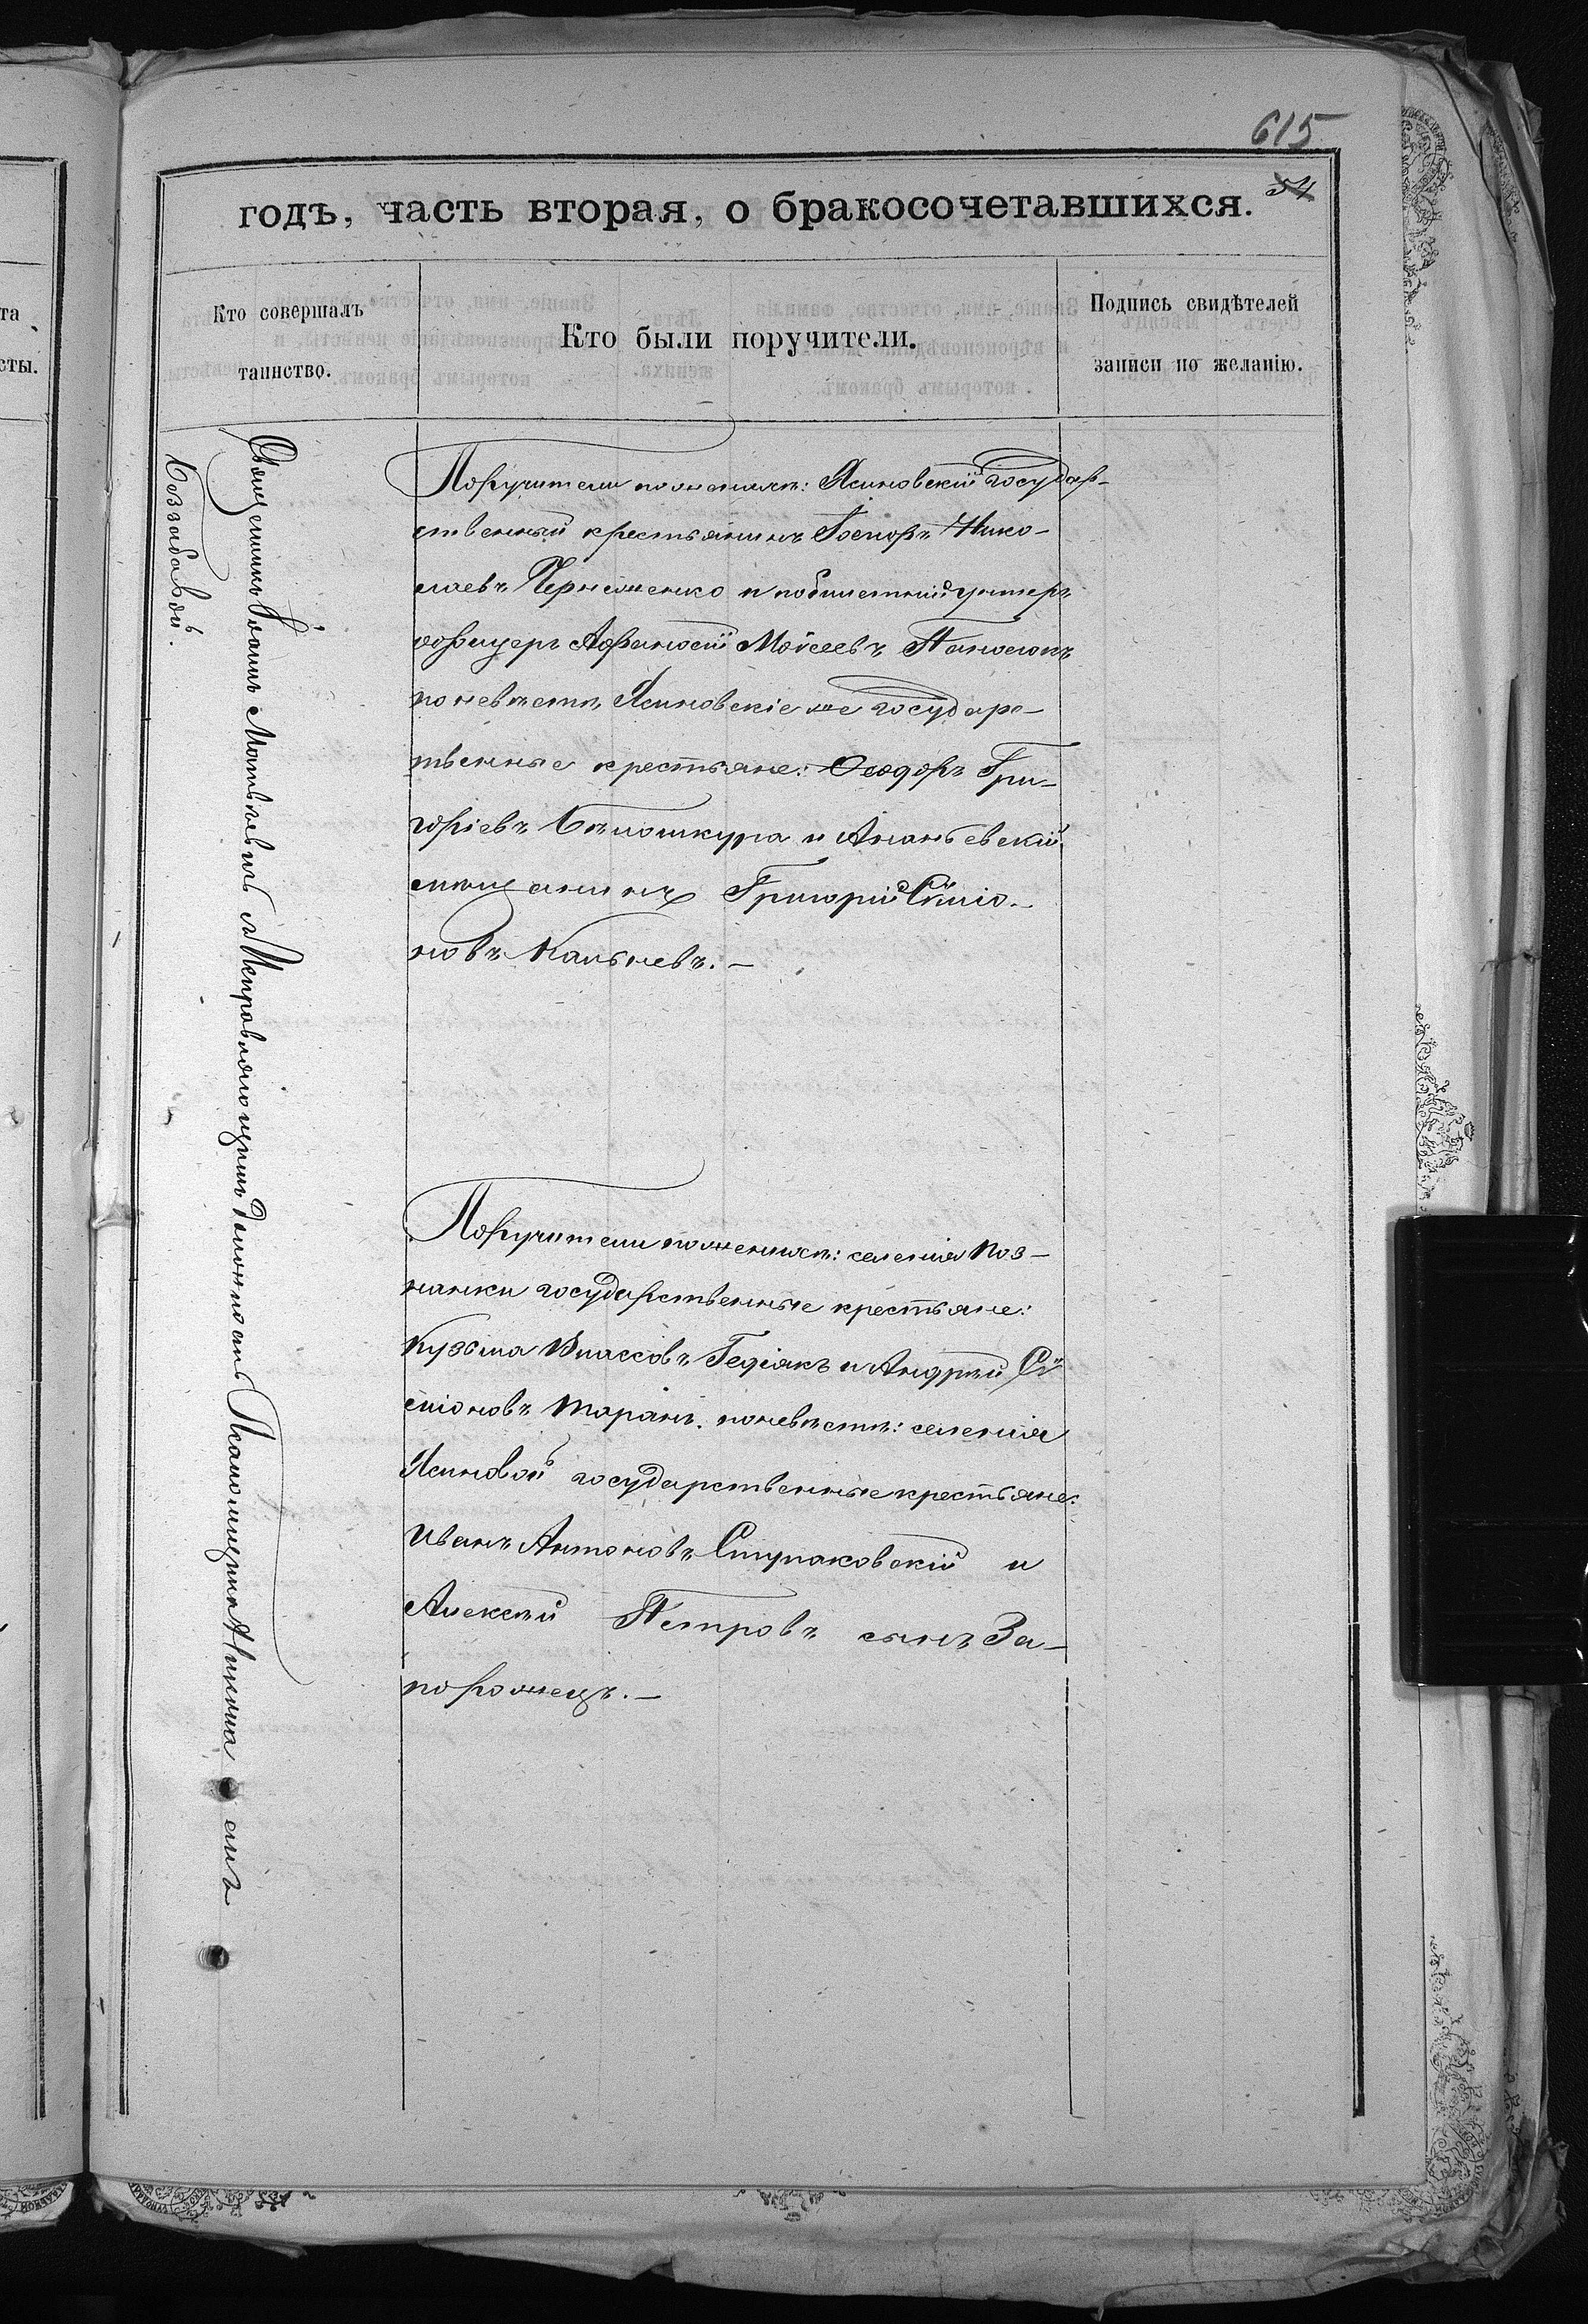 615
54
годъ, часть вторая, о бракосочетавшихся.
та
сты.
Кто совершалъ
таинство.
Кто были поручители.
Подпись свидѣтелей
записи по желанію.
Священникъ Іоаннъ Матвѣевичъ съ Исправляющимъ должность Псаломщика
Беззабавой.
Поручители по женихѣ: Ясиновскій государ-
ственный крестьянинъ Госпоръ Нико-
лаевъ Черноменко и побилетній унтеръ
офицеръ Афанасій Мойсеевъ
по невѣстѣ, Ясиновскіе же государс-
твенные крестьяне: Ѳеодоръ Гри-
горіевъ Бѣлошкура и Ананьевскій
мѣщанинъ Григорій Симіо-
новъ Кальневъ. —
Поручители по женихѣ: селенія Поз-
нанки государственные крестьяне:
Кузьма Власовъ и Андрей Си
міоновъ Таранъ. по невѣстѣ: селенія
Ясиновой государственные крестьяне:
Иванъ Антоновъ Ступаковскій и
Алексѣй Петровъ сынъ За-
порожецъ. —